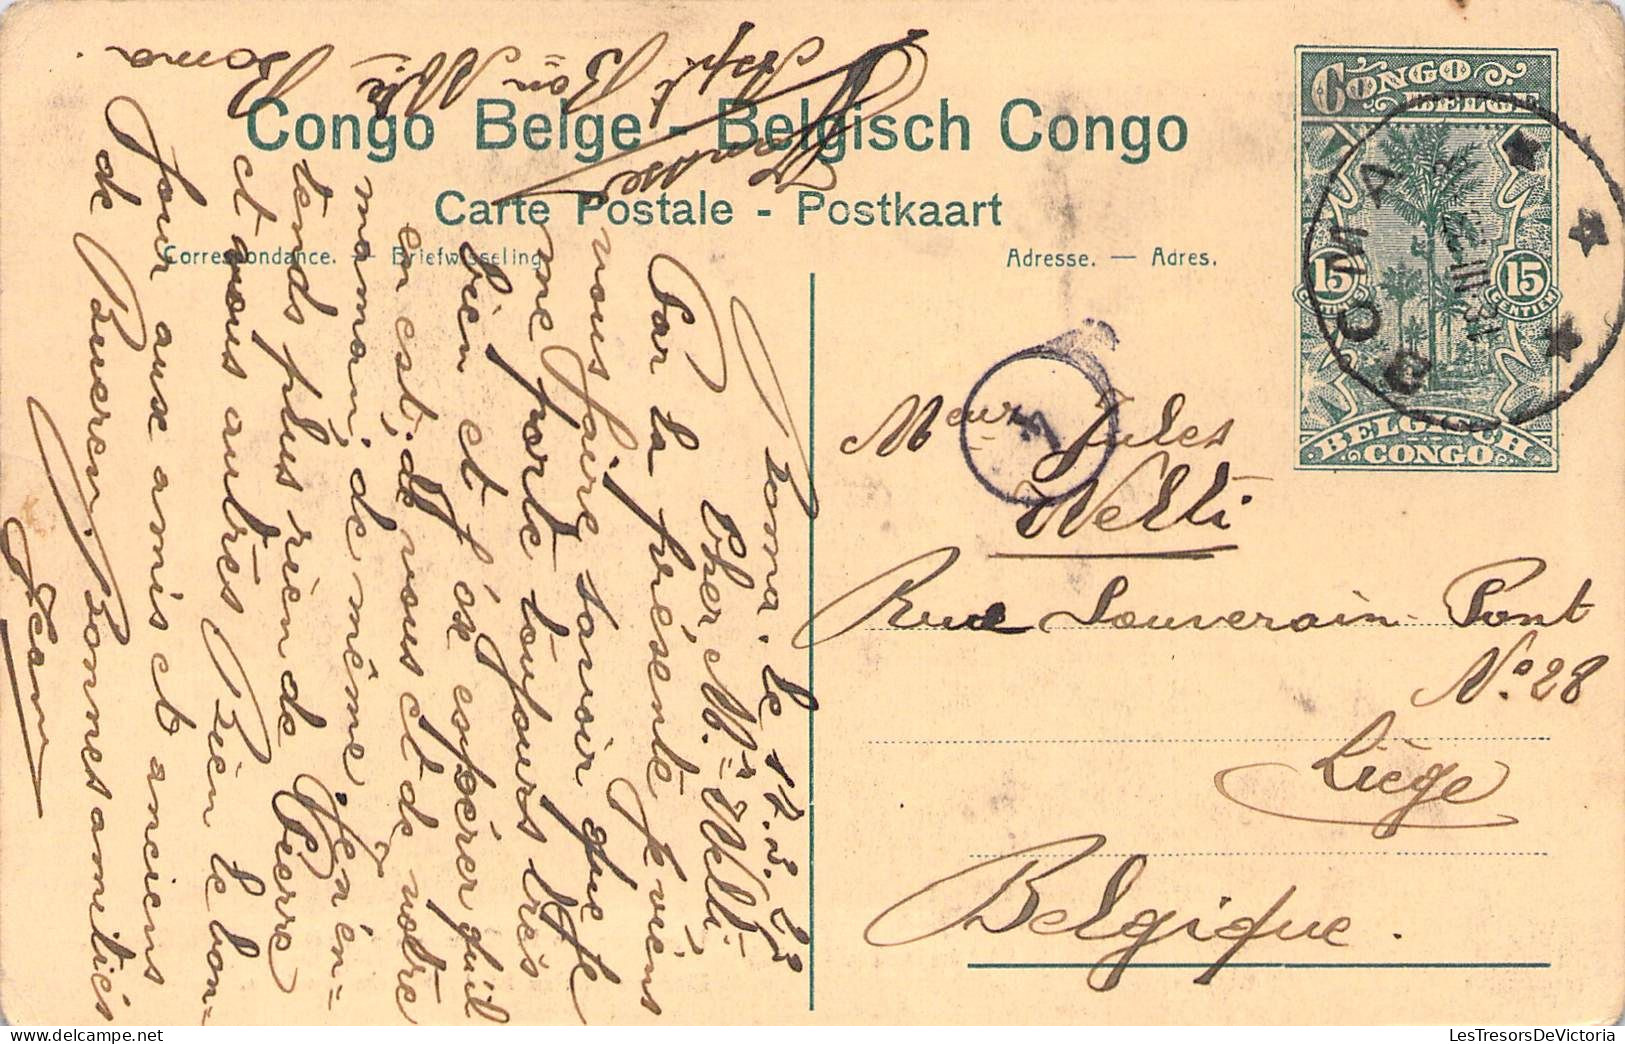 Congo Belge - Belgisch Congo
Carte Postale - Postkaart
Correspondance. — Briefwisseling
Adresse. — Adres.
CONGO
BELGE
15
15
CENTIEM
BELGISCH
CONGO
BOMA
Boma. le 12.3.22
Cher, Mr. Welti
Par la présente Je viens
vous faire savoir que Je
me porte toujours très
bien et J'ose espérer qu'il
en est, de vous et de votre
maman, de même, Je n'en=
tends plus rien de Pierre
et vous autres Bien le bon=
jour aux amis et anciens
de Bueren. Bonnes amitiés
Jean
Boma.
Meur Jules
Welti
Rue Souverain-Pont
No 28
Liège
Belgique.
LesTresorsDeVictoria